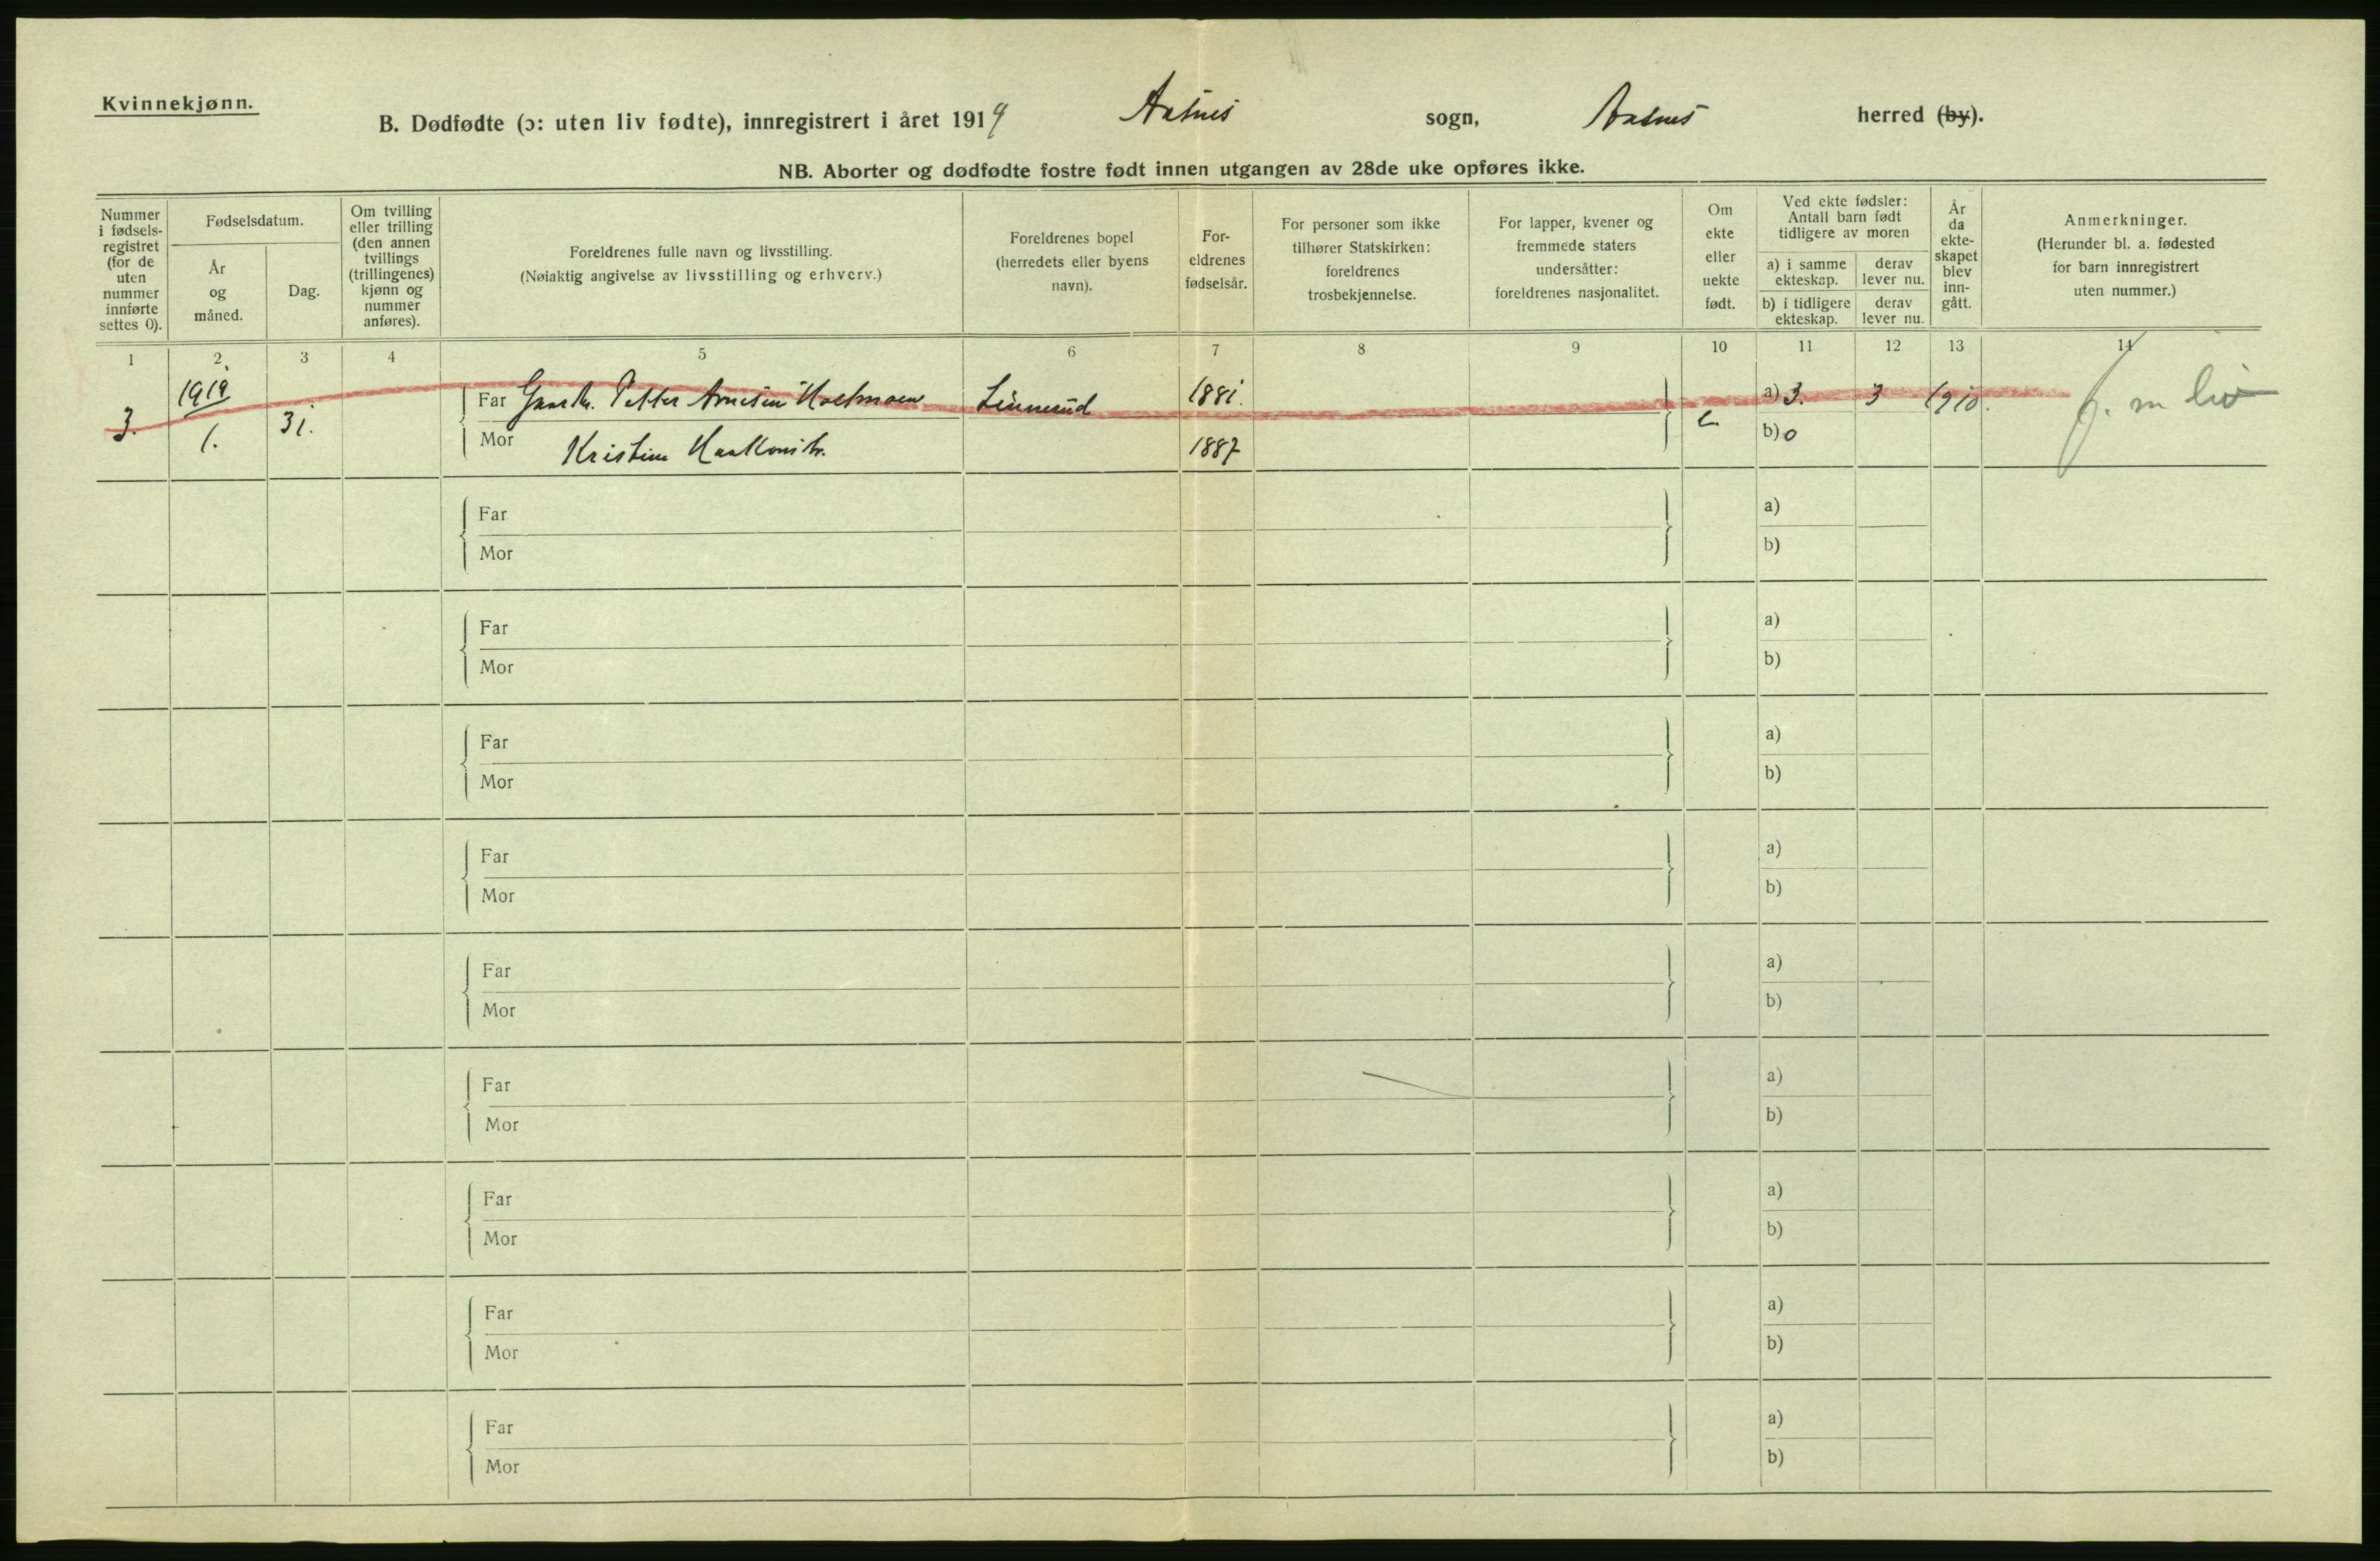 Kvinnekjønn.
B. Dødfødte (ɔ: uten liv fødte), innregistrert i året 1919 Aasnes sogn, Aasnes herred (by).
NB. Aborter og dødfødte fostre født innen utgangen av 28de uke opføres ikke.
Nummer
i fødsels-
registret
(for de
uten
nummer
innførte
settes 0).
Fødselsdatum.
År
og
måned.
Dag.
Om tvilling
eller trilling
(den annen
tvillings
(trillingenes)
kjønn og
nummer
anføres).
Foreldrenes fulle navn og livsstilling.
(Nøiaktig angivelse av livsstilling og erhverv.)
Foreldrenes bopel
(herredets eller byens
navn).
For-
eldrenes
fødselsår.
For personer som ikke
tilhører Statskirken:
foreldrenes
trosbekjennelse.
For lapper, kvener og
fremmede staters
undersåtter:
foreldrenes nasjonalitet.
Om
ekte
eller
uekte
født.
Ved ekte fødsler:
Antall barn født
tidligere av moren
a) i samme
ekteskap.
derav
lever nu.
b) i tidligere
ekteskap.
derav
lever nu.
År
da
ekte-
skapet
blev
inn-
gått.
Anmerkninger.
(Herunder bl. a. fødested
for barn innregistrert
uten nummer.)
1 2 3 4 5 6 7 8 9 10 11 12 13 14
3. 1919 1. 31.
Far Gaardbr. Petter Arnesen Holmoen Linnerud 1881. e. a) 3. 3 1910. f. m liv
Mor Kristine Haakonsdtr. 1887 b) 0
Far a)
Mor b)
Far a)
Mor b)
Far a)
Mor b)
Far a)
Mor b)
Far a)
Mor b)
Far a)
Mor b)
Far a)
Mor b)
Far a)
Mor b)
Far a)
Mor b)